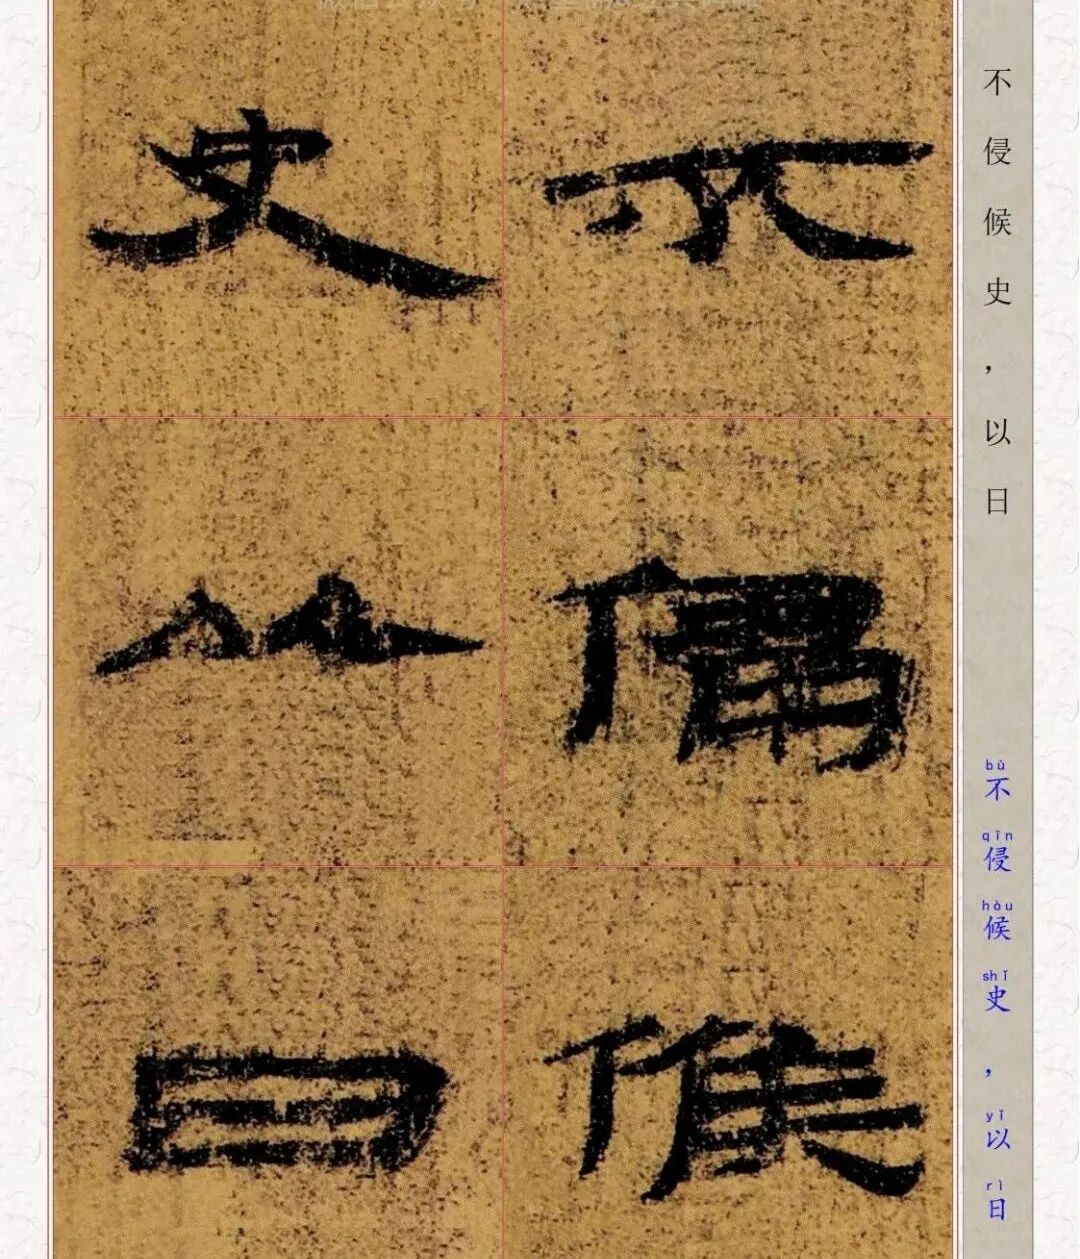 不侵候史,以日
bù qīn hòu shǐ yǐ rì
不侵候史,以日
不侵候
史以日